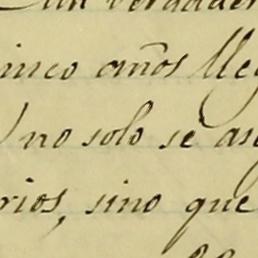 un verdader
inco años lleg
no solo se as
rios, sino que